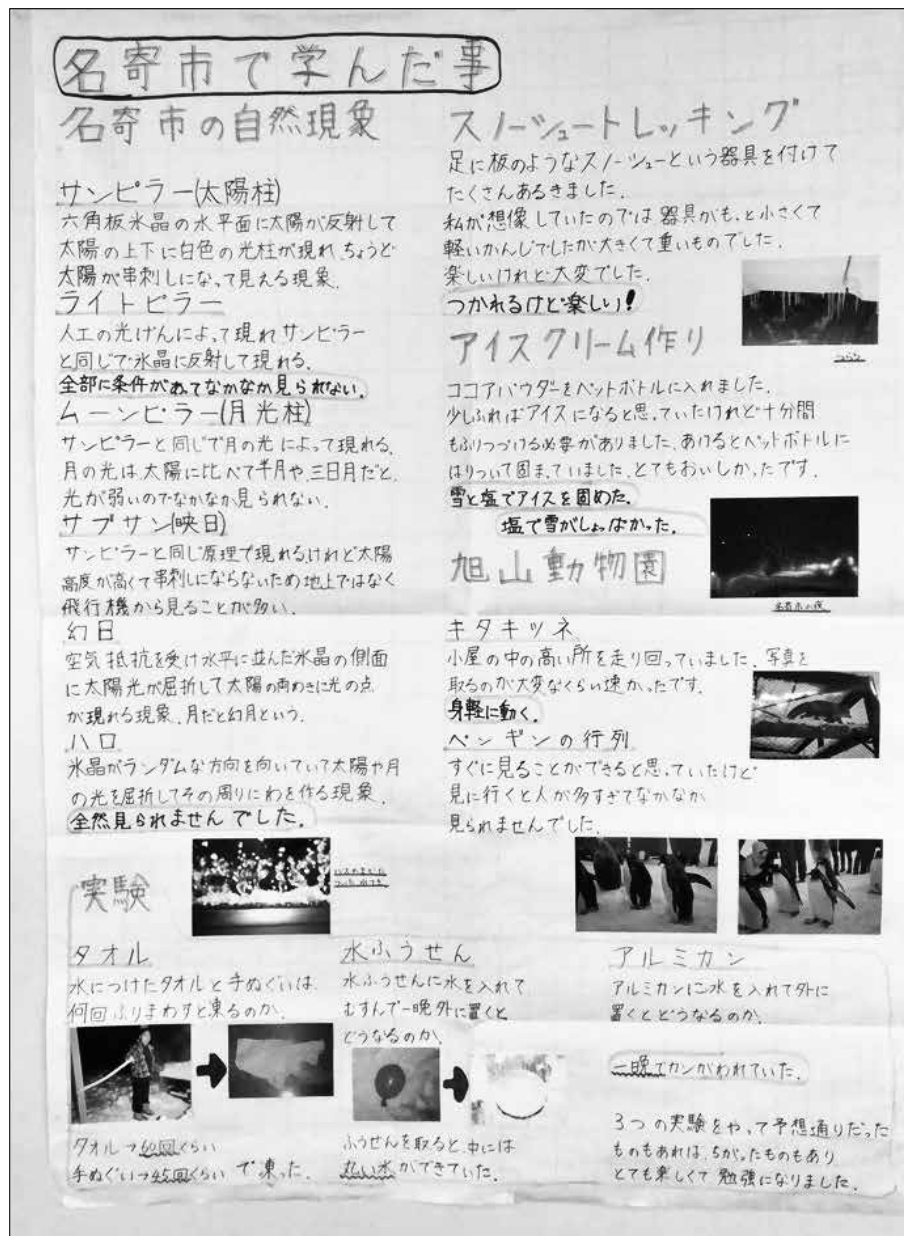 名寄市で学んだ事
名寄市の自然現象
サンピラー(太陽柱)
六角板氷晶の水平面に太陽が反射して
太陽の上下に白色の光柱が現れ、ちょうど
太陽が串刺しになって見える現象.
ライトピラー
人工の光げんによって現れサンピラー
と同じで氷晶に反射して現れる.
全部に条件があってなかなか見られない.
ムーンピラー(月光柱)
サンピラーと同じで月の光によって現れる.
月の光は太陽に比べて半月や三日月だと、
光が弱いのでなかなか見られない.
サブサン(映日)
サンピラーと同じ原理で現れるけれど太陽
高度が高くて串刺しにならないため地上ではなく
飛行機から見ることが多い.
幻日
空気抵抗を受け水平に並んだ氷晶の側面
に太陽光が屈折して太陽の両わきに光の点
が現れる現象.月だと幻月という.
ハロ
氷晶がランダムな方向を向いていて太陽や月
の光を屈折してその周りにわを作る現象.
全然見られませんでした.
スノーシュートレッキング
足に板のようなスノーシューという器具を付けて
たくさんあるきました.
私が想像していたのでは器具がもっと小さくて
軽いかんじでしたが大きくて重いものでした.
楽しいけれど大変でした.
つかれるけど楽しい!
つらら
アイスクリーム作り
ココアパウダーをペットボトルに入れました.
少しふればアイスになると思っていたけれど十分間
もふりつづける必要がありました.あけるとペットボトルに
はりついて固まっていました.とてもおいしかったです.
雪と塩でアイスを固めた.
塩で雪がしょっぱかった.
名寄市の夜
旭山動物園
キタキツネ
小屋の中の高い所を走り回っていました.写真を
取るのが大変なくらい速かったです.
身軽に動く.
ペンギンの行列
すぐに見ることができると思っていたけど
見に行くと人が多すぎてなかなか
見られませんでした.
実験
タオル
水につけたタオルと手ぬぐいは、
何回ふりまわすと凍るのか.
タオル→60回くらい
手ぬぐい→45回くらい で凍った.
水ふうせん
水ふうせんに水を入れて
むすんで一晩外に置くと
どうなるのか.
ふうせんを取ると、中には
丸い氷ができていた.
アルミカン
アルミカンに水を入れて外に
置くとどうなるのか.
一晩でカンがわれていた.
3つの実験をやって予想通りだった
ものもあれば、ちがったものもあり
とても楽しくて勉強になりました.